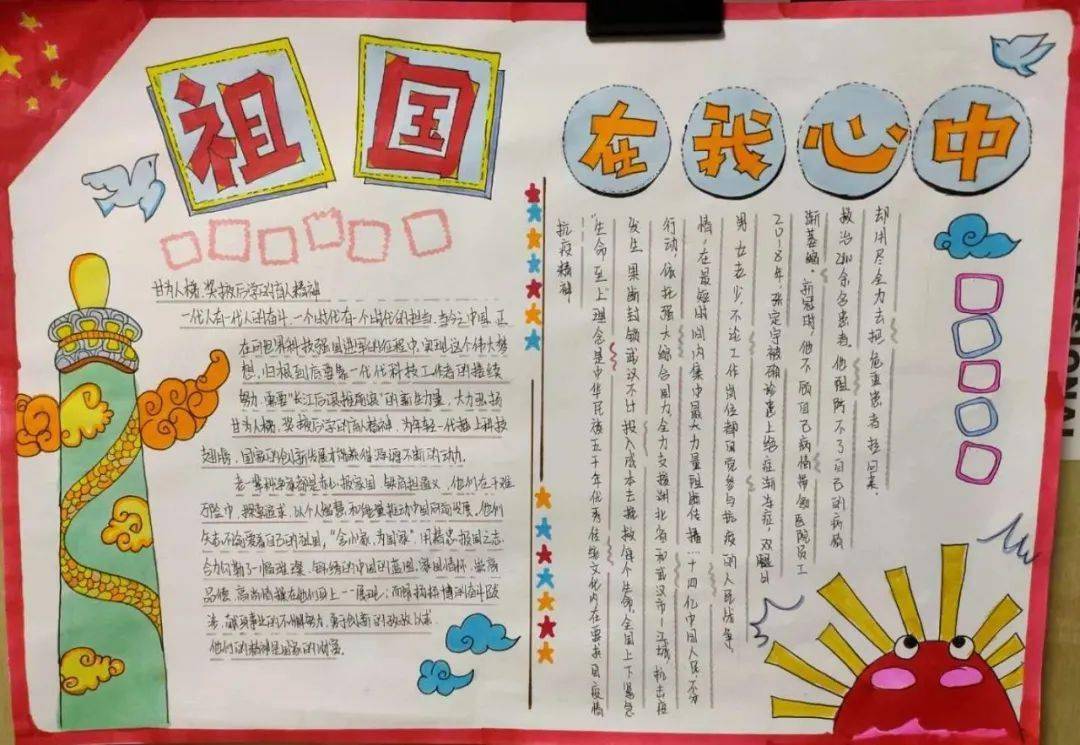 祖国
在我心中
甘为人梯、奖掖后学的育人精神
一代人有一代人的奋斗，一个时代有一个时代的担当。当今之中国，正
在向世界科技强国进军的征程中，实现这个伟大梦
想，归根到底要靠一代代科技工作者的接续
努力，需要"长江后浪推前浪"的新生力量，大力弘扬
甘为人梯、奖掖后学的育人精神，为年轻一代插上科技
翅膀，国家的创新发展才能获得源源不断的动力。
老一辈科学家都是赤心报家国，铁肩担道义，他们在千难
万险中，探索追求，以个人智慧和能量推动中国向前发展，他们
矢志不渝爱着自己的祖国，"舍小家，为国家"，用精忠报国之志，
合力勾勒了一幅璀璨、锦绣的中国的蓝图，家国情怀、崇高
品德、高尚情操在他们身上一一展现；而顽强拼搏的奋斗故
事，献身事业的不懈努力，勇于创新的孜孜以求
他们的精神是国家的脊梁。
抗疫精神
"生命至上"理念是中华民族五千年优秀传统文化内在要求因疫情
发生果断封锁武汉不计投入成本去拯救每个生命，全国上下紧急
行动，依托强大综合国力，全力支援湖北省和武汉市—江城，抗击疫
情，在最短时间内集中最大力量阻断传播…十四亿中国人民，不分
男女老少，不论工作岗位都自觉参与抗疫的人民战争。
2018年，张定宇被确诊患上绝症渐冻症，双腿日
渐萎缩。新冠时，他不顾自己病情带领医院员工
救治余名患者，他阻防不了自己的病情
却用尽全力去把危重患者拉回来。
ESSIONAL